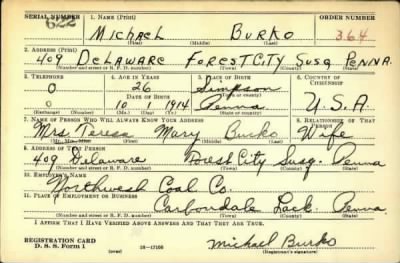 SERIAL NUMBER 622
1. NAME (Print)
ORDER NUMBER
MICHAEL BURKO 364
(First) (Middle) (Last)
2. ADDRESS (Print)
409 DELAWARE FOREST CITY SUSQ PENNA.
(Number and street or R. F. D. number) (Town) (County) (State)
3. TELEPHONE
4. AGE IN YEARS
5. PLACE OF BIRTH
6. COUNTRY OF CITIZENSHIP
0
26
Simpson
DATE OF BIRTH
(Town or county)
0 10 1 1914 Penna U.S.A.
(Exchange) (Number) (Mo.) (Day) (Yr.) (State or country)
7. NAME OF PERSON WHO WILL ALWAYS KNOW YOUR ADDRESS
8. RELATIONSHIP OF THAT PERSON
Mrs Teresa Mary Burko Wife
(Mr., Mrs., Miss) (First) (Middle) (Last)
9. ADDRESS OF THAT PERSON
409 Delaware Forest City Susq. Penna
(Number and street or R. F. D. number) (Town) (County) (State)
10. EMPLOYER'S NAME
Northwest Coal Co.
11. PLACE OF EMPLOYMENT OR BUSINESS
Carbondale Lack. Penna.
(Number and street or R. F. D. number) (Town) (County) (State)
I AFFIRM THAT I HAVE VERIFIED ABOVE ANSWERS AND THAT THEY ARE TRUE.
REGISTRATION CARD
D. S. S. Form 1 (over) 16—17105
Michael Burko
(Registrant's signature)